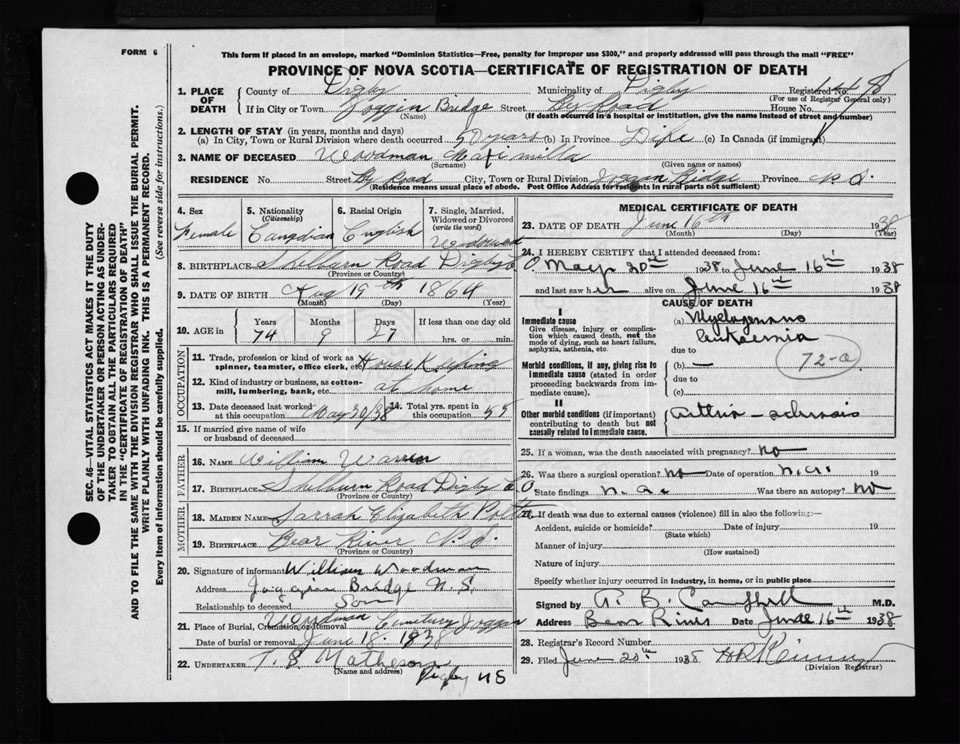 FORM 6
This form if placed in an envelope, marked "Dominion Statistics—Free, penalty for improper use $300," and properly addressed will pass through the mail "FREE"
PROVINCE OF NOVA SCOTIA—CERTIFICATE OF REGISTRATION OF DEATH
SEC. 46—VITAL STATISTICS ACT MAKES IT THE DUTY
OF THE UNDERTAKER OR PERSON ACTING AS UNDER-
TAKER TO OBTAIN ALL THE PARTICULARS REQUIRED
IN THE "CERTIFICATE OF REGISTRATION OF DEATH"
AND TO FILE THE SAME WITH THE DIVISION REGISTRAR WHO SHALL ISSUE THE BURIAL PERMIT.
WRITE PLAINLY WITH UNFADING INK. THIS IS A PERMANENT RECORD.
Every item of information should be carefully supplied. (See reverse side for instructions.)
1. PLACE OF DEATH County of Digby Municipality of Digby Registered No.
(For use of Registrar General only)
If in City or Town Joggin Bridge Street By Road House No.
(Name) (If death occurred in a hospital or institution, give the name instead of street and number)
2. LENGTH OF STAY (in years, months and days)
(a) In City, Town or Rural Division where death occurred 50 years (b) In Province Life (c) In Canada (if immigrant)
3. NAME OF DECEASED Woodman Maximilla
(Surname) (Given name or names)
RESIDENCE No. Street By Road City, Town or Rural Division Joggin Bridge Province N.S.
(Residence means usual place of abode. Post Office Address for residents in rural parts not sufficient)
4. Sex Female
5. Nationality (Citizenship) Canadian
6. Racial Origin English
7. Single, Married, Widowed or Divorced (write the word) Widowed
8. BIRTHPLACE Shelburn Road Digby Co
(Province or Country)
9. DATE OF BIRTH Aug 19th 1864
(Month) (Day) (Year)
10. AGE in Years Months Days If less than one day old
74 9 27 hrs. or min.
OCCUPATION
11. Trade, profession or kind of work as spinner, teamster, office clerk, etc. House Keeping
12. Kind of industry or business, as cotton-mill, lumbering, bank, etc. at home
13. Date deceased last worked at this occupation May 20/38 14. Total yrs. spent in this occupation 55
15. If married give name of wife or husband of deceased
FATHER
16. NAME William Warren
17. BIRTHPLACE Shelburn Road Digby Co
(Province or Country)
MOTHER
18. MAIDEN NAME Sarrah Elizabeth
19. BIRTHPLACE Bear River N.S.
(Province or Country)
20. Signature of informant William Woodman
Address Joggin Bridge N.S.
Relationship to deceased Son
21. Place of Burial, Cremation or Removal Woodman Cemetery Joggin
Date of burial or removal June 18. 1938
22. UNDERTAKER T. S. Matheson
(Name and address)
Digby NS
MEDICAL CERTIFICATE OF DEATH
23. DATE OF DEATH June 16th 1938
(Month) (Day) (Year)
24. I HEREBY CERTIFY that I attended deceased from:
May 20th 1938 to June 16th 1938
and last saw her alive on June 16th 1938
CAUSE OF DEATH
I
Immediate cause (a) Myelogenous leukaemia
Give disease, injury or complication which caused death, not the mode of dying, such as heart failure, asphyxia, asthenia, etc.
due to
72-a
Morbid conditions, if any, giving rise to immediate cause (stated in order proceeding backwards from immediate cause).
(b) —
due to
(c)
II
Other morbid conditions (if important) contributing to death but not causally related to immediate cause.
25. If a woman, was the death associated with pregnancy? no
26. Was there a surgical operation? no Date of operation n.a. 19
State findings n.a. Was there an autopsy? no
27. If death was due to external causes (violence) fill in also the following:—
Accident, suicide or homicide? Date of injury 19
(State which)
Manner of injury
(How sustained)
Nature of injury
Specify whether injury occurred in industry, in home, or in public place
Signed by A. B. Campbell M.D.
Address Bear River Date June 16th 1938
28. Registrar's Record Number
29. Filed June 20th 1938
(Division Registrar)